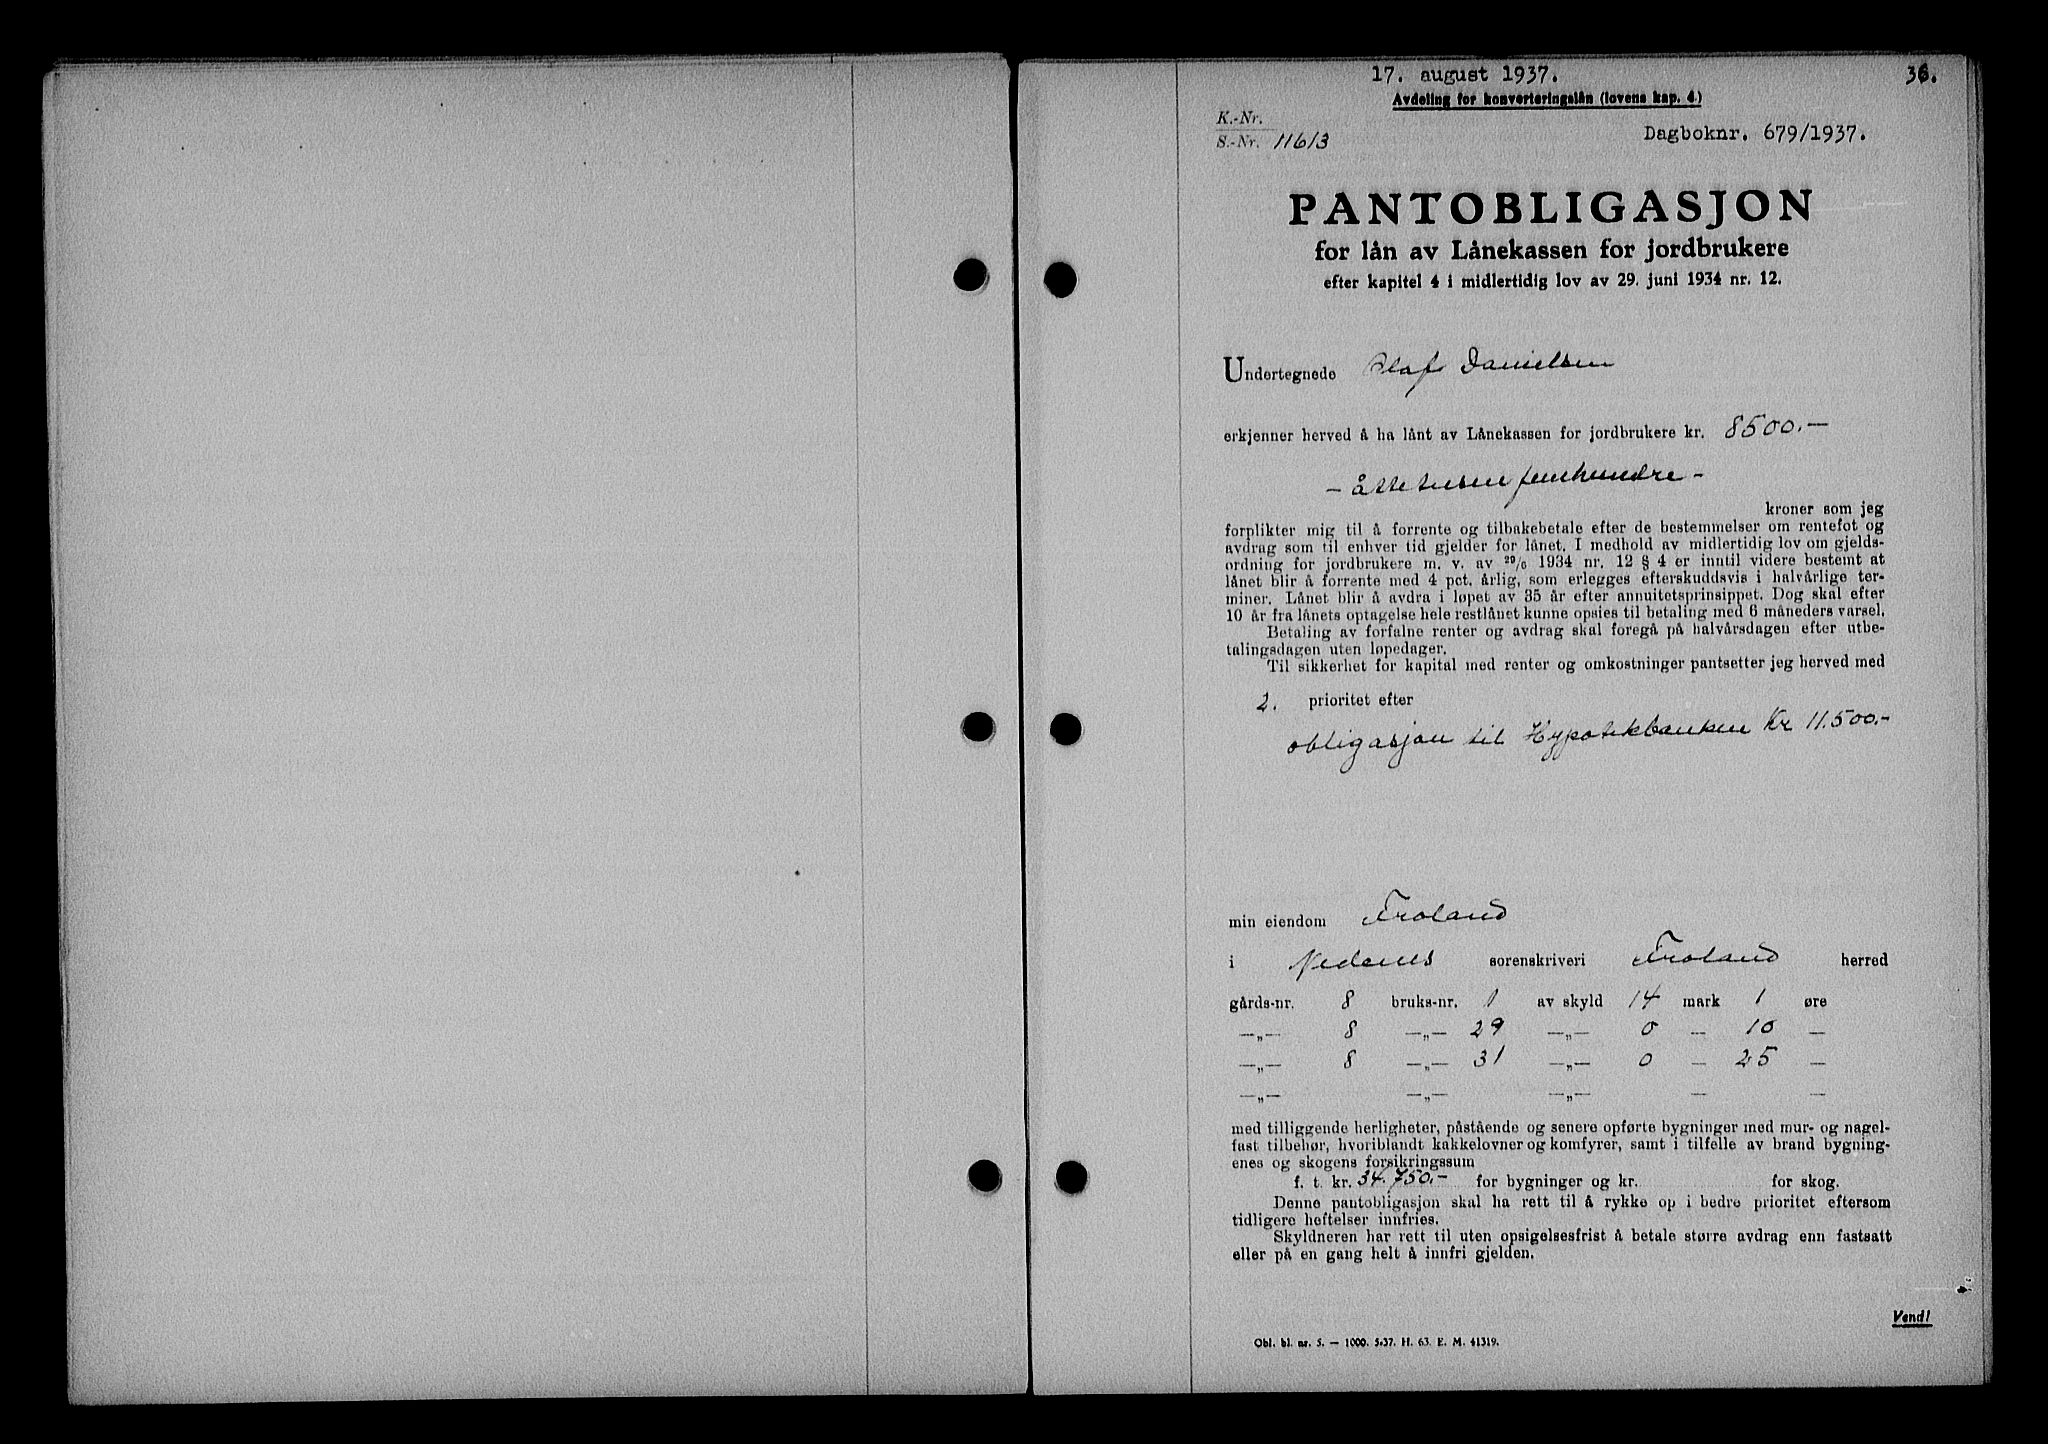 17. august 1937. 36.
Avdeling for konverteringslån (lovens kap. 4)
K.-Nr.
S.-Nr. 11613
Dagboknr. 679/1937.
PANTOBLIGASJON
for lån av Lånekassen for jordbrukere
efter kapitel 4 i midlertidig lov av 29. juni 1934 nr. 12.
Undertegnede Olaf Danielsen
erkjenner herved å ha lånt av Lånekassen for jordbrukere kr. 8500.—
— Åttetusen femhundre —
kroner som jeg
forplikter mig til å forrente og tilbakebetale efter de bestemmelser om rentefot og
avdrag som til enhver tid gjelder for lånet. I medhold av midlertidig lov om gjelds-
ordning for jordbrukere m. v. av 29/6 1934 nr. 12 § 4 er inntil videre bestemt at
lånet blir å forrente med 4 pct. årlig, som erlegges efterskuddsvis i halvårlige ter-
miner. Lånet blir å avdra i løpet av 35 år efter annuitetsprinsippet. Dog skal efter
10 år fra lånets optagelse hele restlånet kunne opsies til betaling med 6 måneders varsel.
Betaling av forfalne renter og avdrag skal foregå på halvårsdagen efter utbe-
talingsdagen uten løpedager.
Til sikkerhet for kapital med renter og omkostninger pantsetter jeg herved med
2. prioritet efter
obligasjon til Hypotekbanken Kr 11.500.-
min eiendom Froland
i Nedenes sorenskriveri Froland herred
gårds-nr. 8 bruks-nr. 1 av skyld 14 mark 1 øre
—„— 8 —„— 29 —„— 0 — 10 —
—„— 8 —„— 31 —„— 0 — 25 —
—„— —„— —„— — —
med tilliggende herligheter, påstående og senere opførte bygninger med mur- og nagel-
fast tilbehør, hvoriblandt kakkelovner og komfyrer, samt i tilfelle av brand bygning-
enes og skogens forsikringssum
f. t. kr. 34.750.- for bygninger og kr. for skog.
Denne pantobligasjon skal ha rett til å rykke op i bedre prioritet eftersom
tidligere heftelser innfries.
Skyldneren har rett til uten opsigelsesfrist å betale større avdrag enn fastsatt
eller på en gang helt å innfri gjelden.
Vend!
Obl. bl. nr. 5. — 1000. 5-37. H. 63. E. M. 41319.